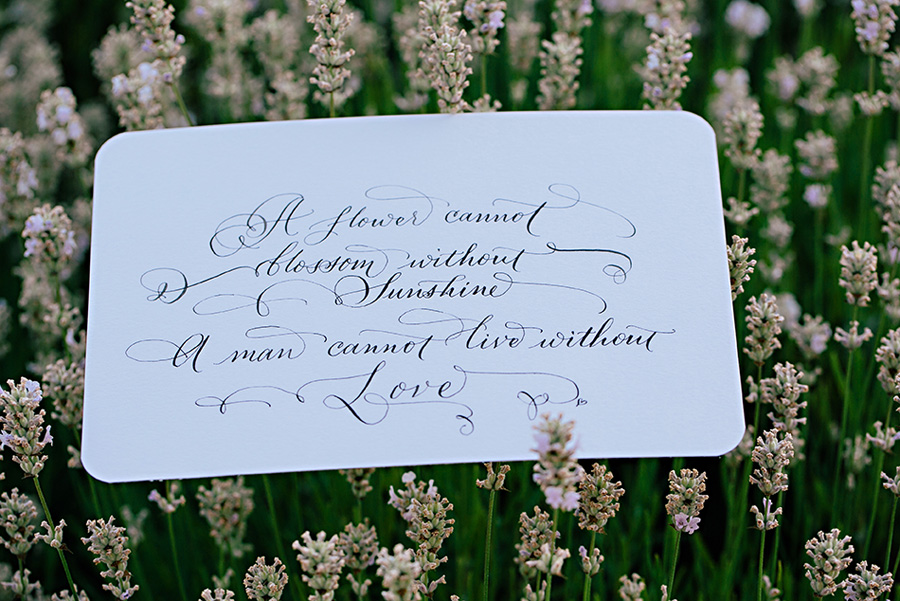 A flower cannot
blossom without
Sunshine
A man cannot live without
Love